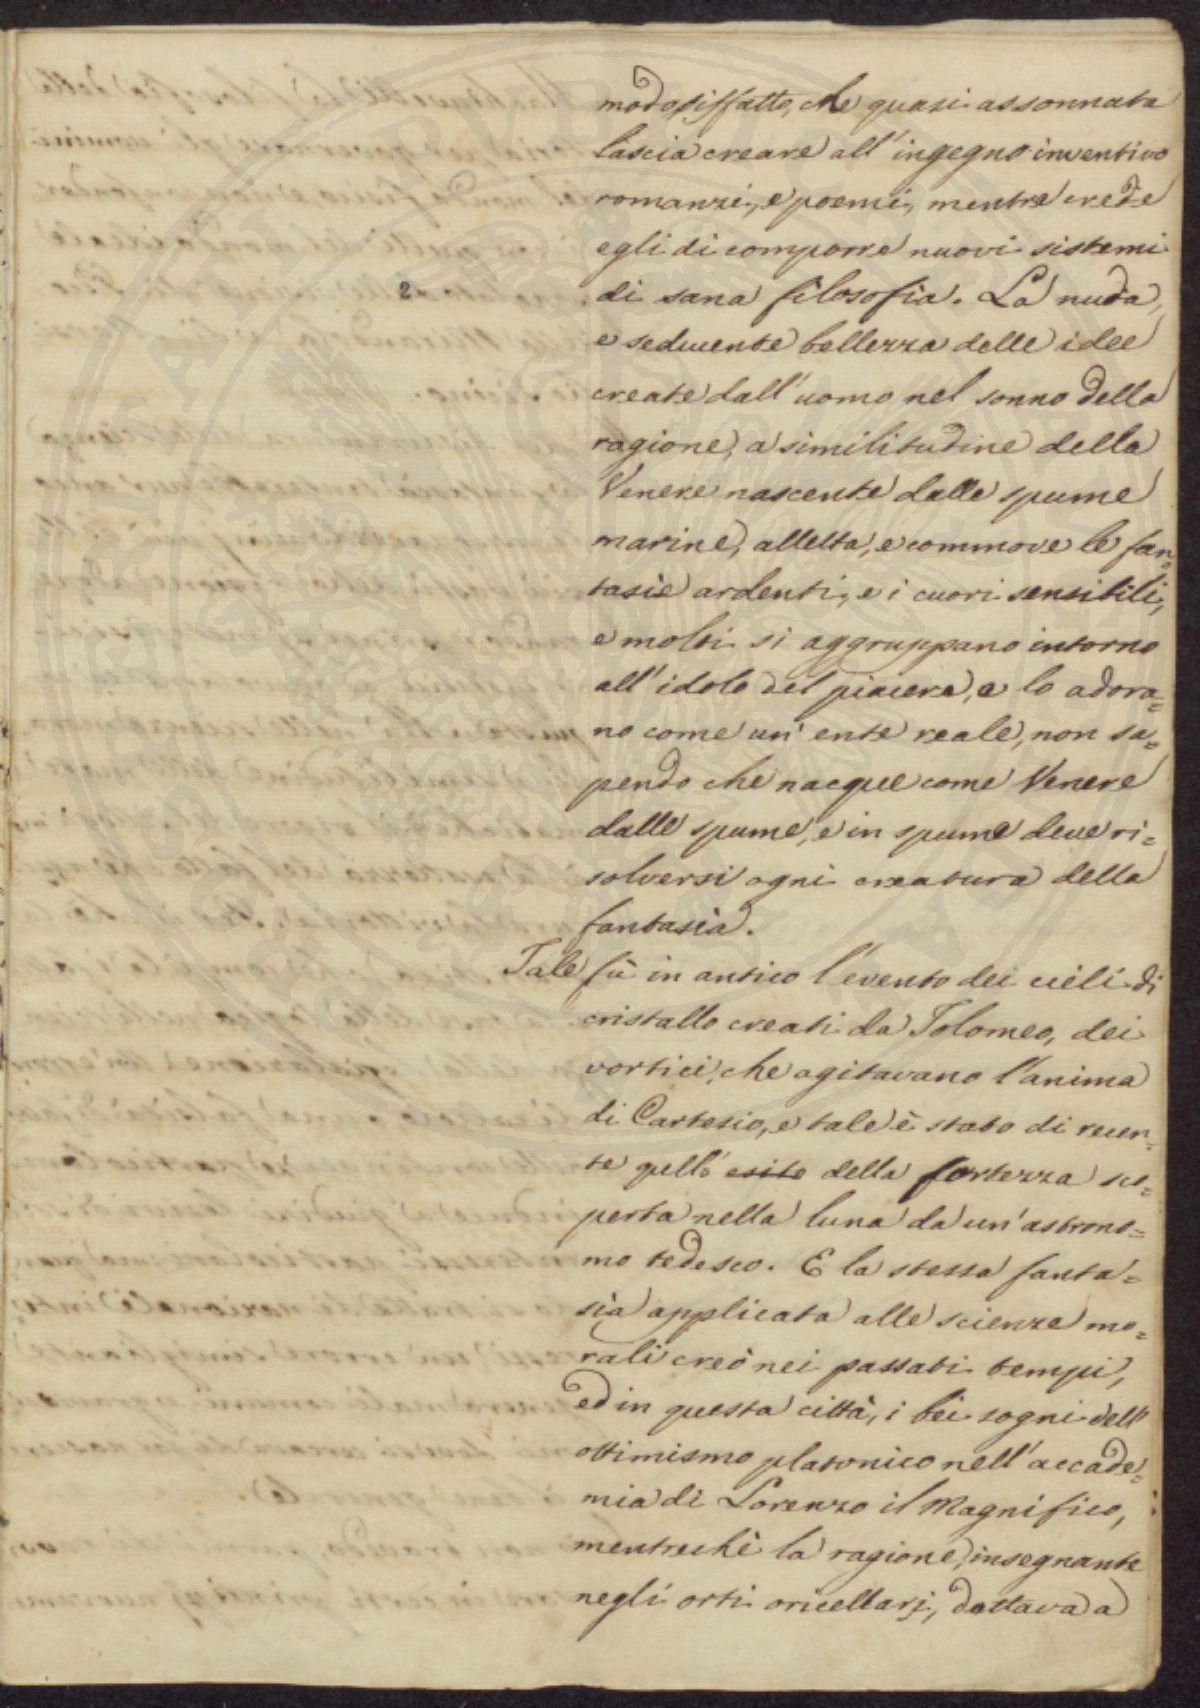 modo siffatto, che quasi assonnata
lascia creare all' ingegno inventivo
romanzi, e poemi, mentre crede
egli di comporre nuovi sistemi
2
di sana filosofia. La nuda,
e seducente bellezza delle idee
create dall' uomo nel sonno della
ragione, a similitudine della
Venere nascente dalle spume
marine, alletta, e commove le fan=
tasie ardenti, e i cuori sensibili,
e molti si aggruppano intorno
all' idolo del piacere, e lo adora=
no come un' ente reale, non sa=
pendo che nacque come Venere
dalle spume, e in spume deve ri=
solversi ogni creatura della
fantasia.
Tale fù in antico l'evento dei cieli di
cristallo creati da Tolomeo, dei
vortici, che agitavano l'anima
di Cartesio, e tale è stato di recen=
te quello esito della fortezza sco=
perta nella luna da un' astrono=
mo tedesco. E la stessa fanta=
sia applicata alle scienze mo=
rali creò nei passati tempi,
ed in questa città, i bei sogni dell'
ottimismo platonico nell' accade=
mia di Lorenzo il Magnifico,
mentrechè la ragione, insegnante
negli orti oricellarj, dettava a